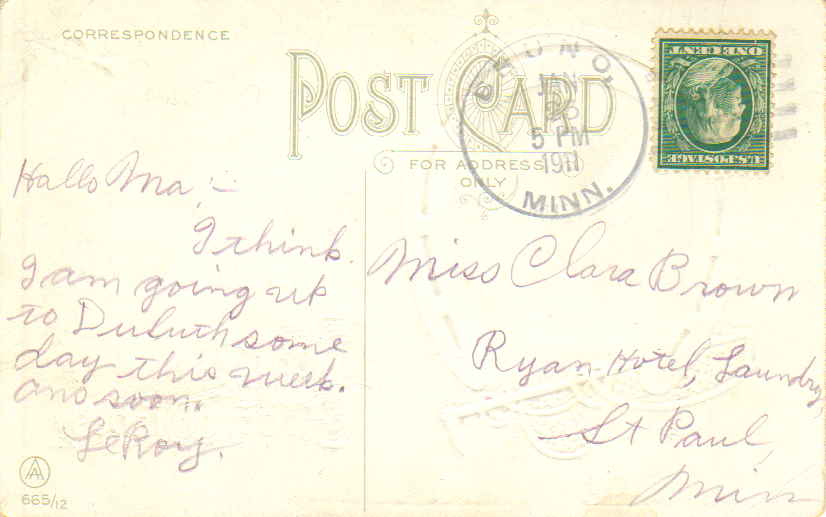 CORRESPONDENCE
POST CARD
FOR ADDRESS
ONLY
JAN
5 PM
1911
MINN.
ONE CENT
U.S. POSTAGE
Hallo Ma:-
I think
I am going up
to Duluth some
day this week.
ans soon.
LeRoy.
Miss Clara Brown
Ryan Hotel, Laundry
St Paul
Minn
AA
665/12